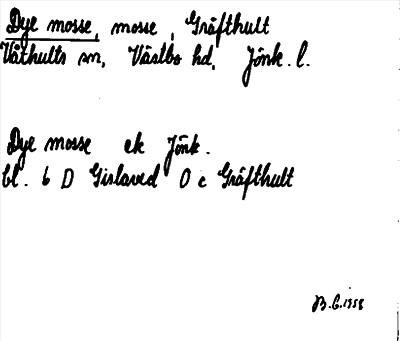 Dye mosse, mosse, Gräfthult
Våthults sn, Västbo hd, Jönk. l.
Dye mosse ek Jönk.
bl. 6 D Gislaved O c Gräfthult
B.E.1958